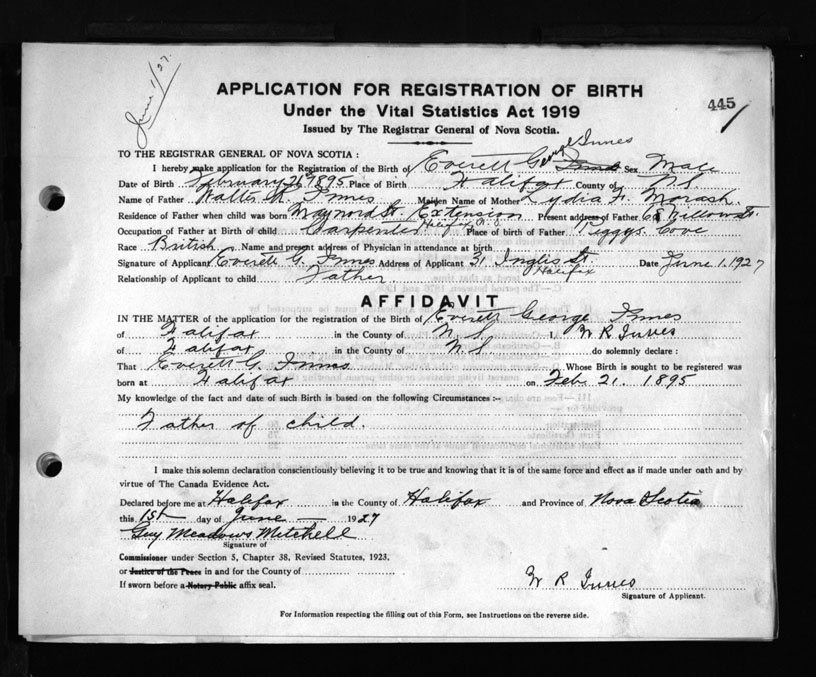 June 1/27.
APPLICATION FOR REGISTRATION OF BIRTH
445
Under the Vital Statistics Act 1919
Issued by The Registrar General of Nova Scotia.
TO THE REGISTRAR GENERAL OF NOVA SCOTIA :
I hereby make application for the Registration of the Birth of Everett George Innes Sex Male
Date of Birth February 21 1895 Place of Birth Halifax County of N.S.
Name of Father Walter R. Innes Maiden Name of Mother Lydia H. Morash.
Residence of Father when child was born Maynard St. Extension Present address of Father St.
Occupation of Father at Birth of child Carpenter Halifax N.S. Place of birth of Father Peggys Cove
Race British Name and present address of Physician in attendance at birth
Signature of Applicant Everett G. Innes Address of Applicant 31 Inglis St. Halifax Date June 1, 1927
Relationship of Applicant to child Father
AFFIDAVIT
IN THE MATTER of the application for the registration of the Birth of Everett George Innes
of Halifax in the County of N.S I, W R Innes
of Halifax in the County of N.S do solemnly declare :
That Everett G. Innes Whose Birth is sought to be registered was
born at Halifax on Feb. 21. 1895
My knowledge of the fact and date of such Birth is based on the following Circumstances :-
Father of child.
I make this solemn declaration conscientiously believing it to be true and knowing that it is of the same force and effect as if made under oath and by
virtue of The Canada Evidence Act.
Declared before me at Halifax in the County of Halifax and Province of Nova Scotia
this 1st day of June 1927
Guy Meadows Mitchell
Signature of
Commissioner under Section 5, Chapter 38, Revised Statutes, 1923.
or Justice of the Peace in and for the County of
If sworn before a Notary Public affix seal.
W R Innes
Signature of Applicant.
For Information respecting the filling out of this Form, see Instructions on the reverse side.